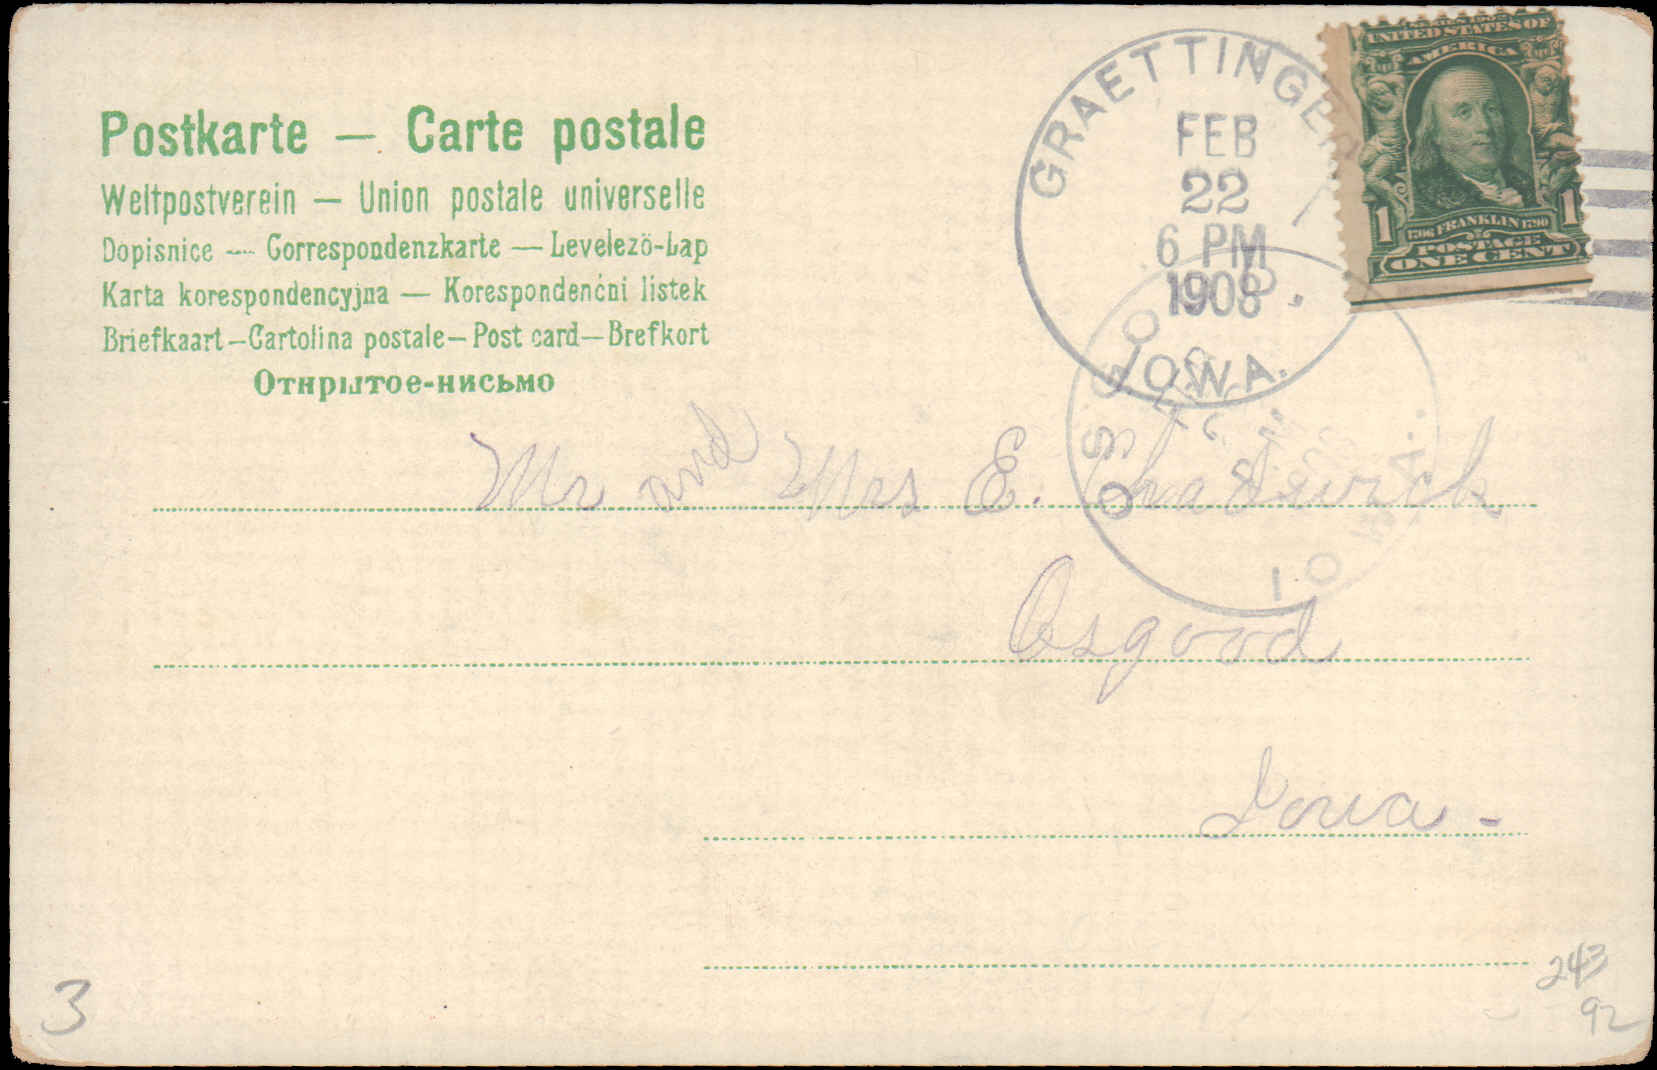 Postkarte — Carte postale
Weltpostverein — Union postale universelle
Dopisnice — Correspondenzkarte — Levelező-Lap
Karta korespondencyjna — Korespondenčni listek
Briefkaart — Cartolina postale — Post card — Brefkort
Открытое-письмо
GRAETTINGER
FEB
22
6 PM
1908
IOWA.
UNITED STATES OF
AMERICA
1 1706 FRANKLIN 1790 1
POSTAGE
ONE CENT
OSGOOD,
IOWA.
Mr and Mrs E. Chadwick
Osgood
Iowa -
3
243
92